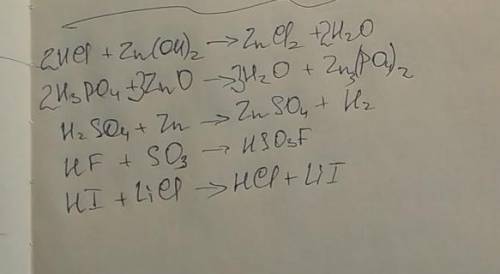 2HCl + Zn(OH)2 → ZnCl2 + 2H2O
2H3PO4 + 3ZnO → 3H2O + Zn3(PO4)2
H2SO4 + Zn → ZnSO4 + H2
HF + SO3 → HSO3F
HI + LiCl → HCl + LiI